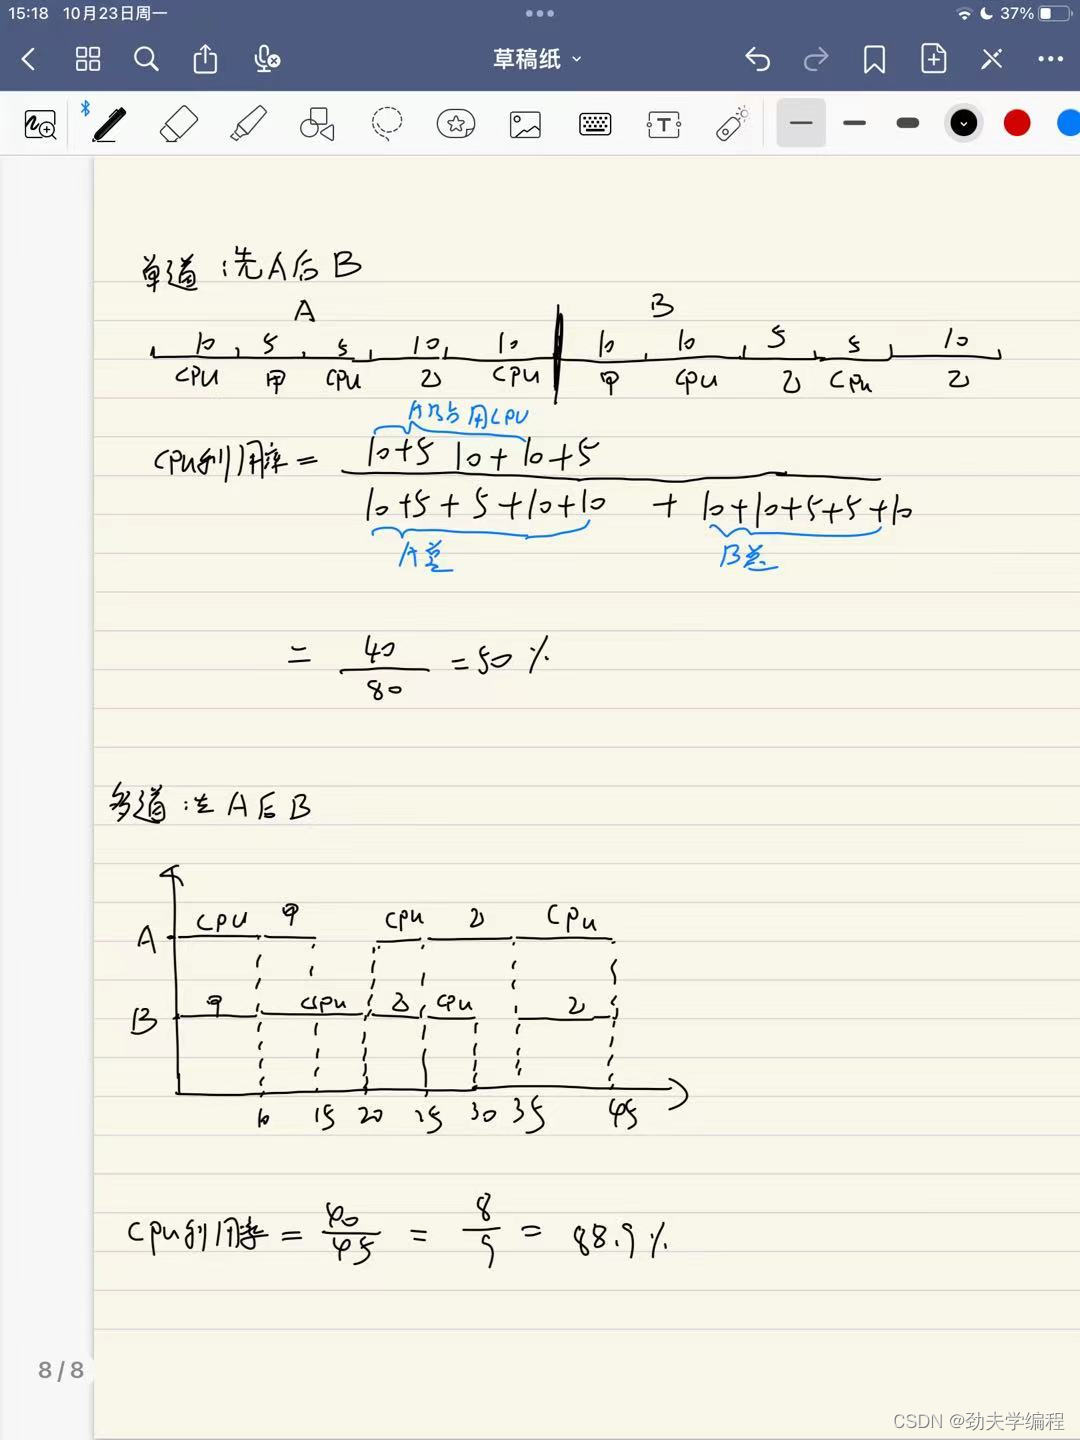 15:18 10月23日周一 37%
草稿纸
单道：先A后B
A B
10 5 5 10 10 10 10 5 5 10
CPU 甲 CPU 乙 CPU 甲 CPU 乙 CPU 乙
AB占用CPU
CPU利用率 = 10+5 10+10+5
10+5+5+10+10 + 10+10+5+5+10
A总 B总
= 40/80 = 50%
多道：先A后B
A CPU 甲 CPU 乙 CPU
B 甲 CPU 乙 CPU 乙
10 15 20 25 30 35 45
CPU利用率 = 40/45 = 8/9 = 88.9%
8/8
CSDN @劲夫学编程